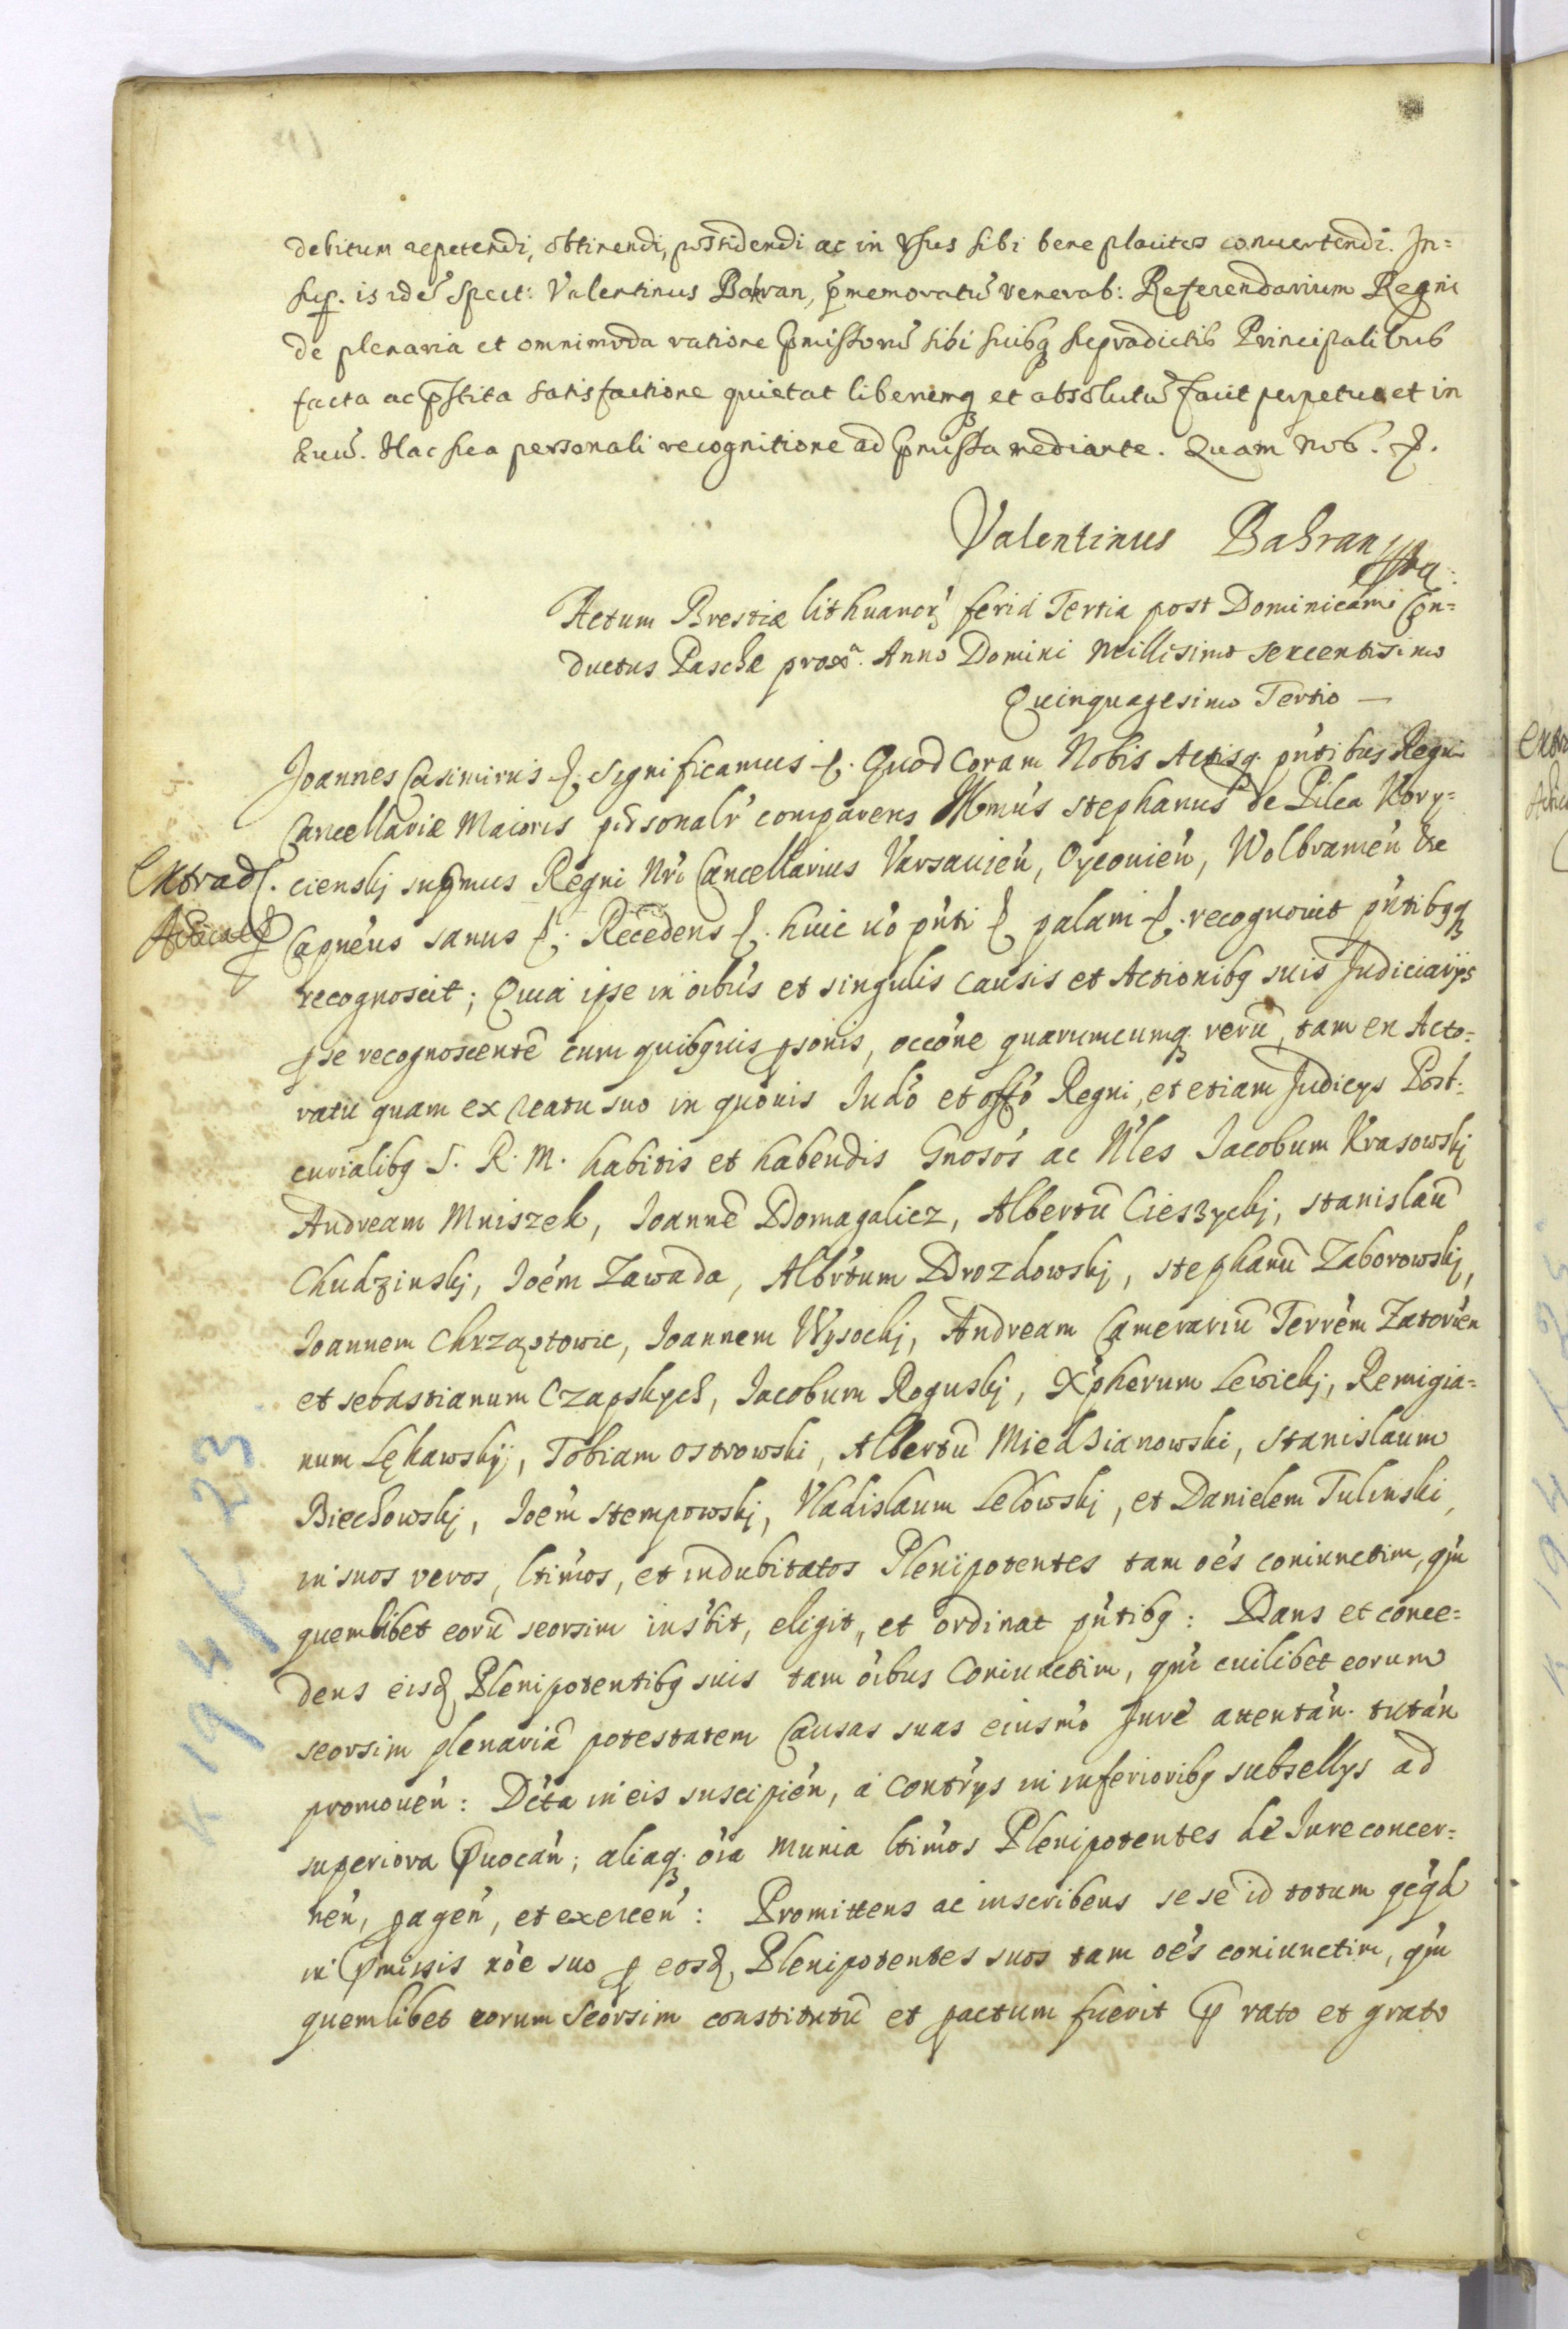 debitum repetendi, obtinendi, possidendi ac in Usus sibi bene placitos convertendi. In=
sup. is idē Spect: Valentinus Bahran, p̄memoratū venerab: Referendarium Regni
de plenaria et omnimoda ratione p̄missorū sibi suibq supradictis Principalibus
facta ac p̄stita satisfactione quietat liberumq et absolutū facit perpetuo et in
ævū. Hac sua personali recognitione ad p̄missa mediante. Quam nob. p.
Valentinus Bahran
Actum Brestiæ lithuanorʒ feria Tertia post Dominicam Con=
ductus Paschæ proxª. Anno Domini Millesimo sexcentesimo
Quinquagesimo Tertio —
Joannes Casimirus p. Significamus p. Quod Coram Nobis Actisq. pn̄tibus Regni
Cancellariæ Maioris personalr̄ comparens Illmūs Stephanus de Pilca Kory=
Extrad. cienskj supmus Regni Nri Cancellarius Varsavien̄, Oycovien̄, Wolbramen̄ &c
Capnēus sanus p. Recedens p. huic uō pn̄ti p palam p. recognovit pn̄tibqq
recognoscit; Quia ipse in oībus et singulis causis et Actionibq suis Judiciarijs
p se recognoscentē cum quibquis psonis, occōne quarumcumq rerū, tam ex Acto=
ratu quam ex reatu suo in quōvis Judō et offō Regni, et etiam Judicys Post=
curialibq S. R. M. habitis et habendis Gnosōs ac Nles Jacobum Krasowskj
Andream Mniszek, Joannē Domagalicz, Albertū Cieszyckj, Stanislaū
Chudzinskj, Joēm Zawada, Albrtum Drozdowskj, Stephanū Zaborowskj,
Joannem Chrząstowic, Joannem Wysockj, Andream Camerariū Terrēm Zatoriēn
et Sebastianum Czapskych, Jacobum Roguskj, Xpherum Lewickj, Remigia=
num Lękawskij, Tobiam Ostrowski, Albertū Miedzianowski, Stanislaum
Biechowskj, Joēm Stempowskj, Vladislaum Lelowskj, et Danielem Tulinski,
in suos veros, ltimos, et indubitatos Plenipotentes tam oēs coniunctim, qm̄
quemlibet eorū seorsim instit, eligit, et ordinat pn̄tibq: Dans et conce=
dens eisd Plenipotentibq suis tam oībus Coniunctim, qm̄ cuilibet eorum
seorsim plenariā potestatem Causas suas eiusmō Jure attentān. tutān
promouēn: Dcta in eis suscipiēn, a contrys in inferioribq subsellys ad
superiora pvocān; aliaq. oīa munia ltimos Plenipotentes de Jure concer=
nēn, pagēn, et exercēn: Promittens ac inscribens sese id totum qcqd
in pmissis nōe suo p eosd Plenipotentes suos tam oēs coniunctim, qm̄
quemlibet eorum seorsim constitutū et pactum fuerit p rato et grato
K 194 K 23